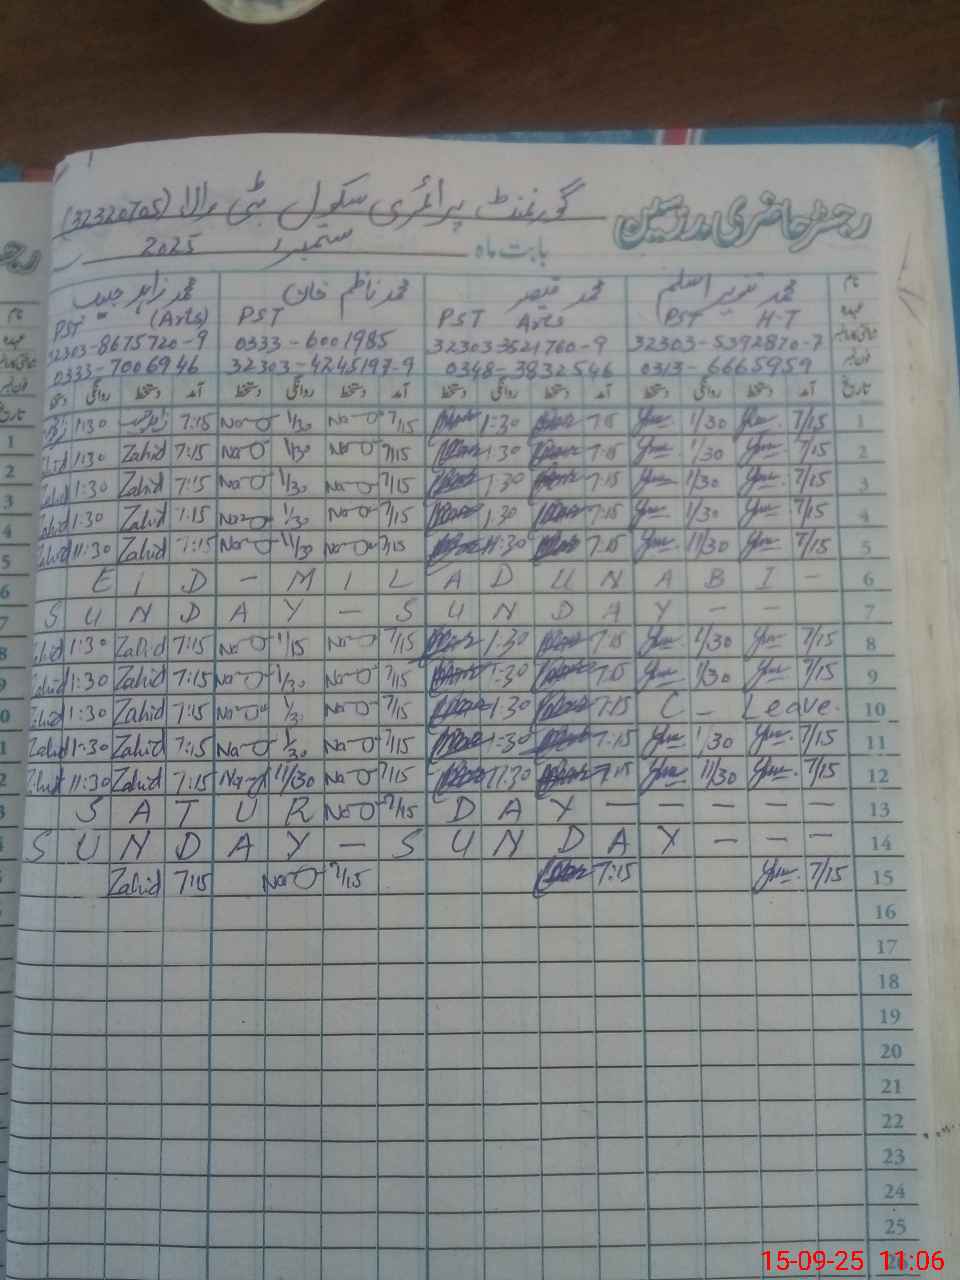 رجسٹر حاضری مدرسین گورنمنٹ پرائمری سکول بٹی والا (32320705)
بابت ماہ ستمبر 2025
نام محمد تنویر اسلم محمد قیصر محمد ناظم خان محمد زاہد حبیب
PST H-T PST Arts PST PST (Arts)
32303-5392870-7 32303-3521760-9 0333-6001985 32303-8675720-9
0313-6665959 0348-3832546 32303-4245197-9 0333-7006946
تاریخ آمد دستخط روانگی دستخط آمد دستخط روانگی دستخط آمد دستخط روانگی دستخط آمد دستخط روانگی دستخط
1 7/15 1/30 7:15 1:30 7/15 1/30 7:15 1:30
2 7/15 1/30 7:15 1:30 7/15 1/30 7:15 Zahid 1:30 Zahid
3 7/15 1/30 7:15 1:30 7/15 1/30 7:15 Zahid 1:30 Zahid
4 7/15 1/30 7:15 1:30 7/15 1/30 7:15 Zahid 1:30 Zahid
5 7/15 11/30 7:15 11:30 7/15 11/30 7:15 Zahid 11:30 Zahid
EID - MILAD UN ABI - 6
SUNDAY - SUNDAY - - 7
8 7/15 1/30 7:15 1:30 7/15 1/15 7:15 Zahid 1:30 Zahid
9 7/15 1/30 7:15 1:30 7/15 1/30 7:15 Zahid 1:30 Zahid
10 C - Leave 7:15 1:30 7/15 1/30 7:15 Zahid 1:30 Zahid
11 7/15 1/30 7:15 1:30 7/15 1/30 7:15 Zahid 1:30 Zahid
12 7/15 11/30 7:15 11:30 7/15 11/30 7:15 Zahid 11:30 Zahid
SATUR 7/15 DAY - - - - - 13
SUNDAY - SUNDAY - - - 14
15 7/15 7:15 7/15 7:15 Zahid
16
17
18
19
20
21
22
23
24
25
26
15-09-25 11:06